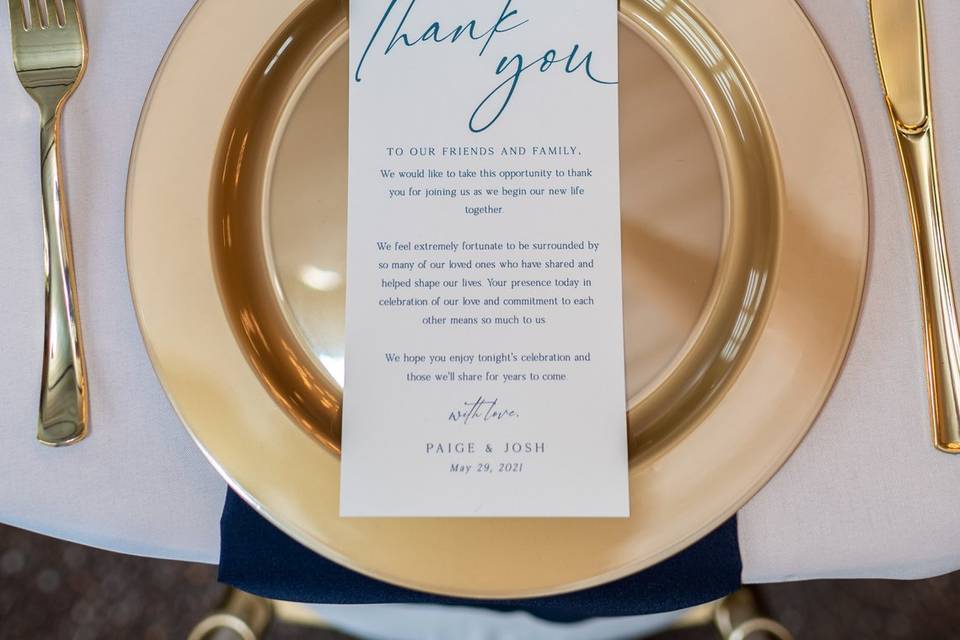 Thank
you
TO OUR FRIENDS AND FAMILY,
We would like to take this opportunity to thank
you for joining us as we begin our new life
together.
We feel extremely fortunate to be surrounded by
so many of our loved ones who have shared and
helped shape our lives. Your presence today in
celebration of our love and commitment to each
other means so much to us.
We hope you enjoy tonight's celebration and
those we'll share for years to come.
with love,
PAIGE & JOSH
May 29, 2021